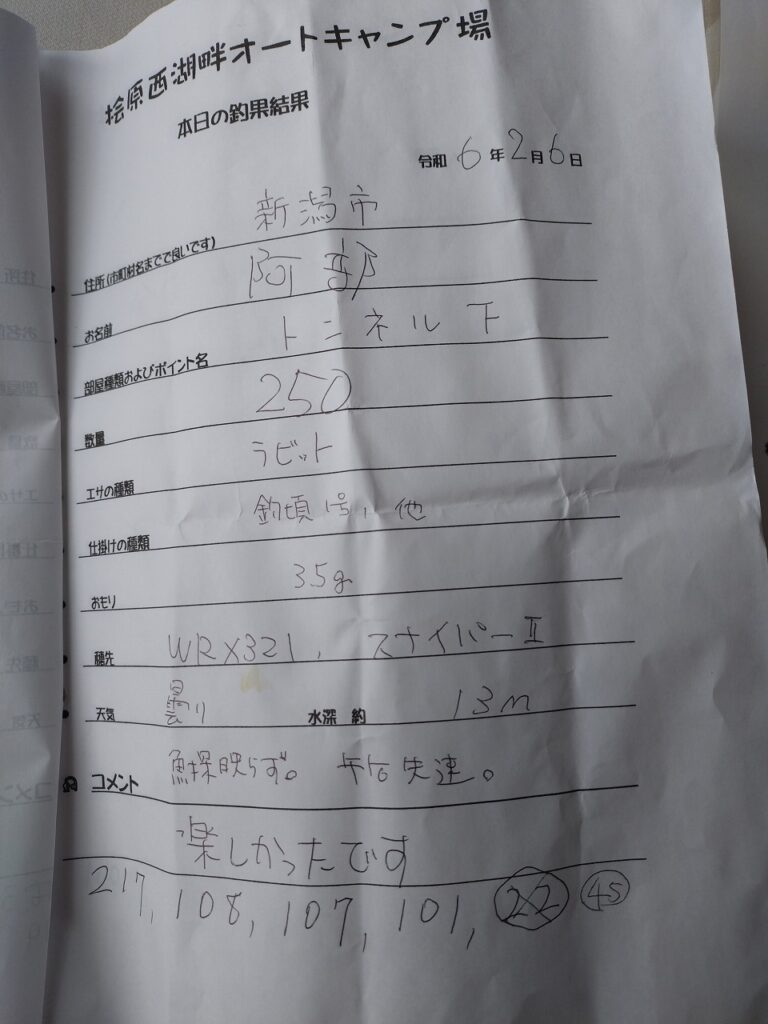 桧原西湖畔オートキャンプ場
本日の釣果結果
令和 6 年 2 月 6 日
住所(市町村名までで良いです) 新潟市
お名前 阿部
部屋種類およびポイント名 トンネル下
数量 250
エサの種類 ラビット
仕掛けの種類 釣頃1号, 他
おもり 3.5g
穂先 WRX321, スナイパーⅡ
天気 曇り 水深 約 13m
コメント 魚探映らず。 失速。
楽しかったです
217, 108, 107, 101, 22 45